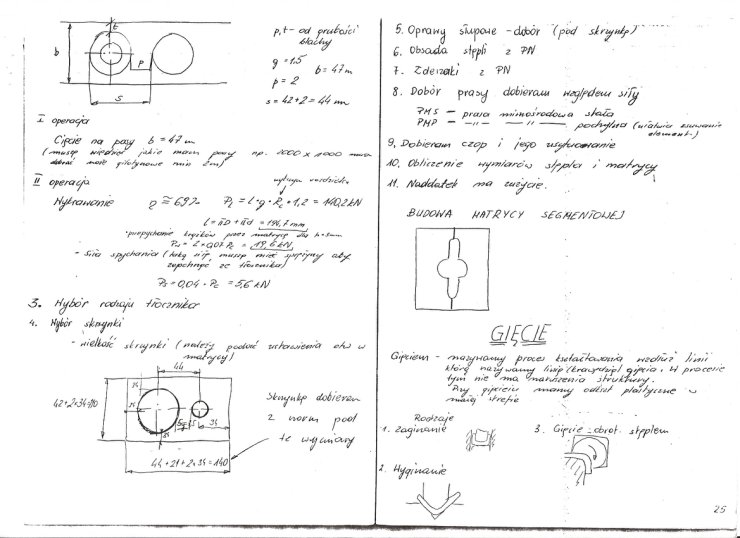 t
b
p
s
p, t - od grubości
blachy
g = 1,5
b = 47 m
p = 2
s = 42 + 2 = 44 mm
I operacja
Cięcie na pasy b = 47 m
(muszę wiedzieć jakie mam pasy np. 2000 x 1000 mm
może gilotynowe min 2m)
II operacja
Wykrawanie η ≅ 69% Pt = l · g · Rt · 1,2 = 140,2 kN
l = πD + πd = 194,7 mm
- przepychanie krążków przez matrycę dla h = 5mm
= 19,6 kN
- Siła spychania (taką siłę muszę mieć sprężyny aby
zepchnąć ze tłocznika)
Ps = 0,04 · Pc = 5,6 kN
3. Wybór rodzaju tłocznika
4. Wybór skrzynki
- wielkość skrzynki (należy podać ustawienia otw w
matrycy)
44
34
42+2x34=110
34
34
34
44 + 21 + 2x34 = 140
Skrzynkę dobieram
z norm pod
te wymiary
5. Oprawy słupowe - dobór (pod skrzynkę)
6. Obsada stępli z PN
7. Zderzaki z PN
8. Dobór prasy dobieram względem siły
PMS - prasa mimośrodowa stała
PMP - -"- -"- pochylna (ułatwia zsuwanie
element.)
9. Dobieram czop i jego usytuowanie
10. Obliczenie wymiarów stępla i matrycy
11. Naddatek na zużycie.
BUDOWA MATRYCY SEGMENTOWEJ
GIĘCIE
Gięciem - nazywamy proces kształtowania wzdłuż linii
którą nazywamy linię (krawędzią) gięcia. W procesie
tym nie ma naruszenia struktury.
Przy gięciu mamy odkszt plastyczne w
małej strefie
Rodzaje
1. Zaginanie
3. Gięcie obrot. stęplem
2. Wyginanie
25